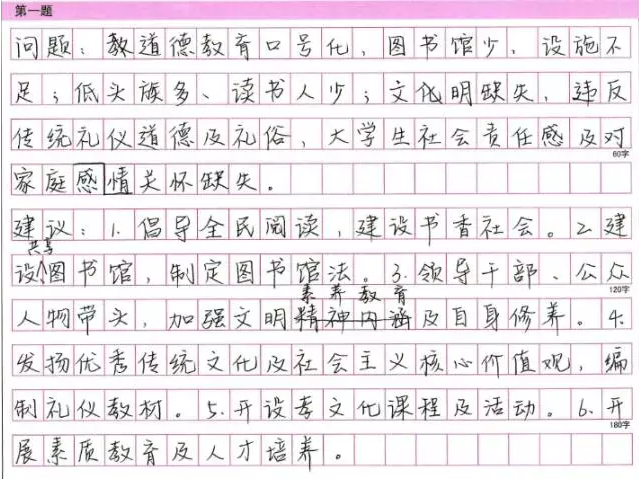 第一题
问题：教道德教育口号化，图书馆少，设施不
足；低头族多、读书人少；文化明缺失，违反
传统礼仪道德及礼俗，大学生社会责任感及对
60字
家庭感情关怀缺失。
建议：1.倡导全民阅读，建设书香社会。2.建
共享
设图书馆，制定图书馆法。3.领导干部、公众
120字
素养教育
人物带头，加强文明精神内涵及自身修养。4.
发扬优秀传统文化及社会主义核心价值观，编
制礼仪教材。5.开设孝文化课程及活动。6.开
180字
展素质教育及人才培养。